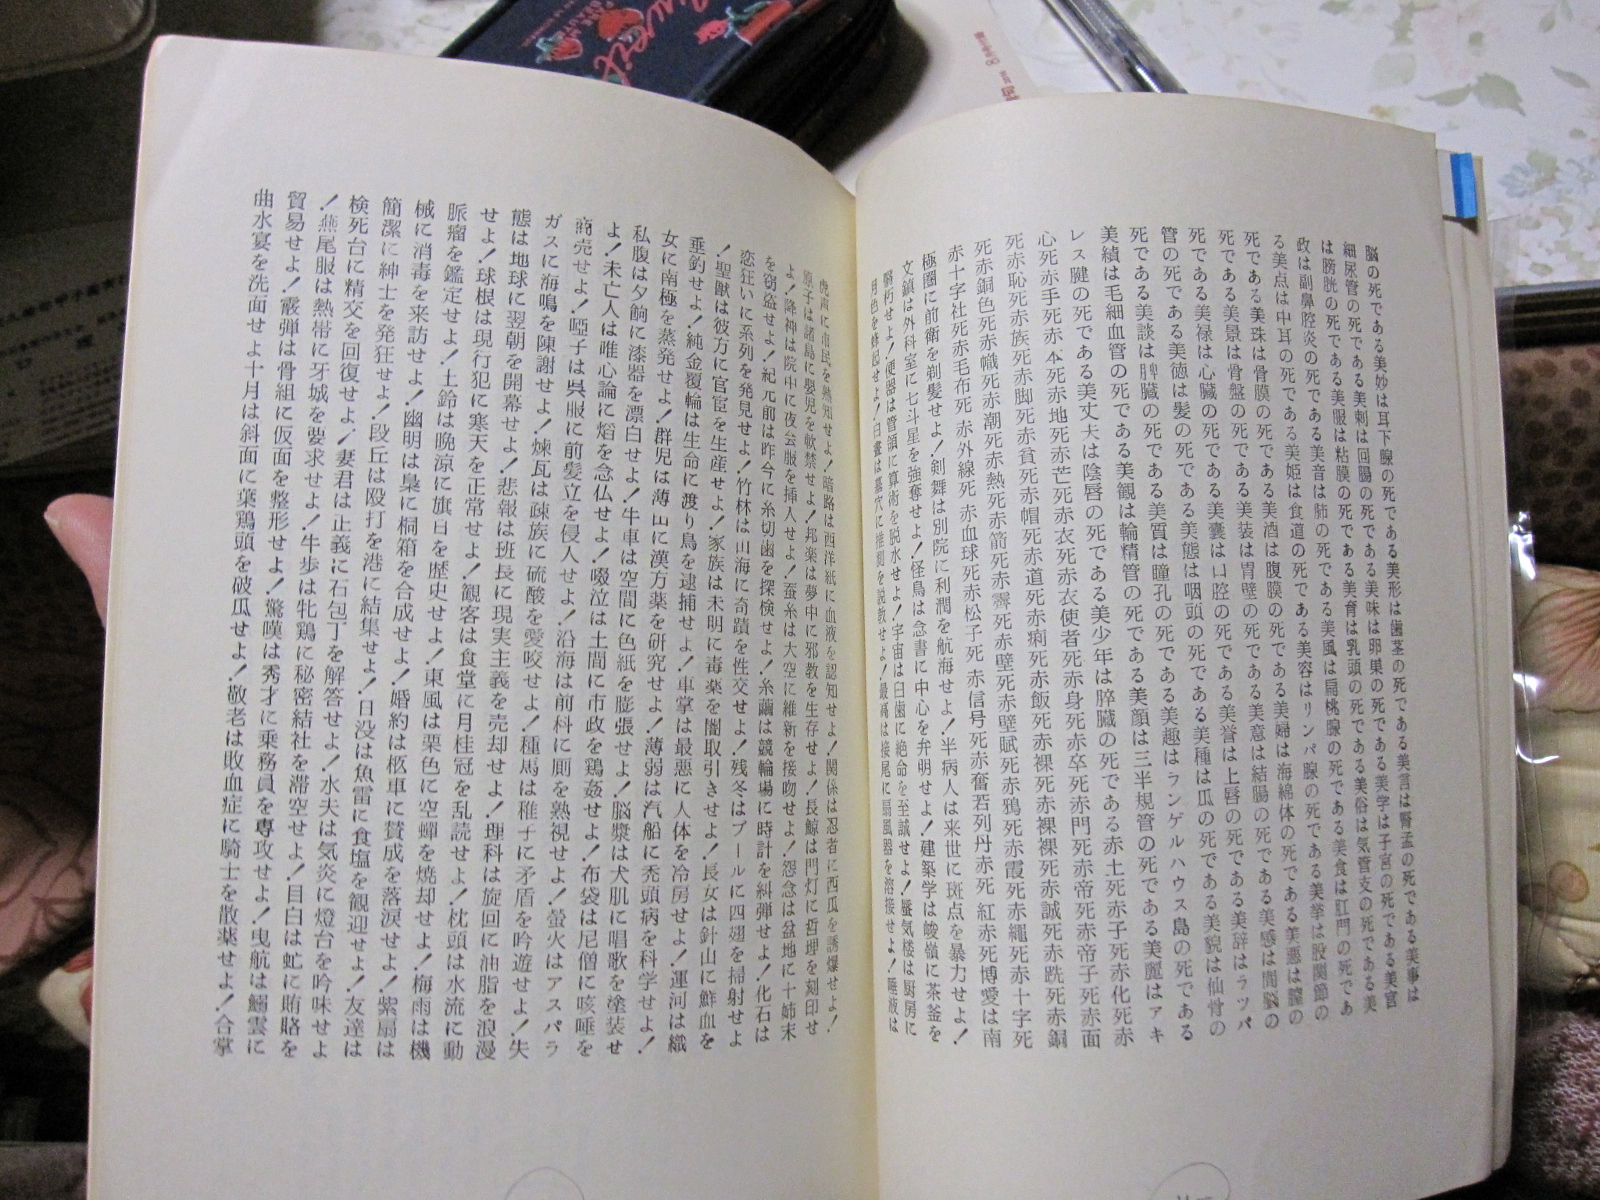 脳の死である美妙は耳下腺の死である美形は歯茎の死である美言は腎盂の死である美事は
細尿管の死である美刺は回腸の死である美味は卵巣の死である美学は子宮の死である美官
は膀胱の死である美服は粘膜の死である美育は乳頭の死である美俗は気管支の死である美
政は副鼻腔炎の死である美音は肺の死である美風は扁桃腺の死である美食は肛門の死であ
る美点は中耳の死である美姫は食道の死である美容はリンパ腺の死である美挙は股関節の
死である美珠は骨膜の死である美酒は腹膜の死である美婦は海綿体の死である美悪は膣の
死である美景は骨盤の死である美装は胃壁の死である美意は結腸の死である美感は間脳の
死である美禄は心臓の死である美嚢は口腔の死である美誉は上唇の死である美辞はラッパ
管の死である美徳は髪の死である美態は咽頭の死である美種は瓜の死である美貌は仙骨の
死である美談は脾臓の死である美質は瞳孔の死である美趣はランゲルハウス島の死である
美績は毛細血管の死である美観は輪精管の死である美顔は三半規管の死である美麗はアキ
レス腱の死である美丈夫は陰唇の死である美少年は膵臓の死である赤土死赤子死赤化死赤
心死赤手死赤本死赤地死赤芒死赤衣死赤衣使者死赤身死赤卒死赤門死赤帝死赤帝子死赤面
死赤恥死赤族死赤脚死赤貧死赤帽死赤道死赤痢死赤飯死赤裸死赤裸裸死赤誠死赤跣死赤銅
死赤銅色死赤幟死赤潮死赤熱死赤箭死赤霽死赤壁死赤壁賦死赤鴉死赤霞死赤縄死赤十字死
赤十字社死赤毛布死赤外線死赤血球死赤松子死赤信号死赤奮若列丹赤死紅赤死博愛は南
極圏に前衛を剃髪せよ！剣舞は別院に利潤を航海せよ！半病人は来世に斑点を暴力せよ！
文鎮は外科室に七斗星を強奪せよ！怪鳥は念書に中心を弁明せよ！建築学は峻嶺に茶釜を
朽せよ！便器は管領に算術を脱水せよ！宇宙は臼歯に絶命を至誠せよ！蜃気楼は厨房に
色を蜂起せよ！白昼は墓穴に推関を説教せよ！最高は接尾に扇風器を溶接せよ！唾液は
虎声に市民を熱知せよ！暗路は西洋紙に血液を認知せよ！関係は忍者に西瓜を誘爆せよ！
原子は諸島に嬰児を軟禁せよ！邦楽は夢中に邪教を生存せよ！長鯨は門灯に哲理を刻印せ
よ！降神は院中に夜会服を挿入せよ！蚕糸は大空に維新を接吻せよ！怨念は盆地に十姉末
を窃盗せよ！紀元前は昨今に糸切歯を探検せよ！糸繭は競輪場に時計を糾弾せよ！化石は
恋狂いに系列を発見せよ！竹林は山海に奇蹟を性交せよ！残冬はプールに四翅を掃射せよ
！聖獣は彼方に官宦を生産せよ！家族は未明に毒薬を闇取引きせよ！長女は針山に鮮血を
垂釣せよ！純金覆輪は生命に渡り鳥を逮捕せよ！車掌は最悪に人体を冷房せよ！運河は織
女に南極を蒸発せよ！群児は薄山に漢方薬を研究せよ！薄弱は汽船に禿頭病を科学せよ！
私腹は夕餉に漆器を漂白せよ！牛車は空間に色紙を膨張せよ！脳漿は犬肌に唱歌を塗装せ
よ！未亡人は唯心論に焰を念仏せよ！啜泣は土間に市政を鶏姦せよ！布袋は尼僧に咳唾を
商売せよ！啞子は呉服に前髪立を侵入せよ！沿海は前科に厠を熟視せよ！蛍火はアスパラ
ガスに海鳴を陳謝せよ！煉瓦は疎族に硫酸を愛咬せよ！種馬は稚子に矛盾を吟遊せよ！失
態は地球に翌朝を開幕せよ！悲報は班長に現実主義を売却せよ！理科は旋回に油脂を浪漫
せよ！球根は現行犯に寒天を正常せよ！観客は食堂に月桂冠を乱読せよ！枕頭は水流に動
脈瘤を鑑定せよ！土鈴は晩涼に旗日を歴史せよ！東風は栗色に空蟬を焼却せよ！梅雨は機
械に消毒を来訪せよ！幽明は梟に桐箱を合成せよ！婚約は柩車に賛成を落涙せよ！紫扇は
簡潔に紳士を発狂せよ！段丘は殴打を港に結集せよ！日没は魚雷に食塩を観迎せよ！友達は
検死台に精交を回復せよ！妻君は正義に石包丁を解答せよ！水夫は気炎に燈台を吟味せよ
！燕尾服は熱帯に牙城を要求せよ！牛歩は牝鶏に秘密結社を滞空せよ！目白は虻に賄賂を
貿易せよ！霰弾は骨組に仮面を整形せよ！驚嘆は秀才に乗務員を専攻せよ！曳航は鰯雲に
曲水宴を洗面せよ十月は斜面に葉鶏頭を破瓜せよ！敬老は敗血症に騎士を散薬せよ！合掌